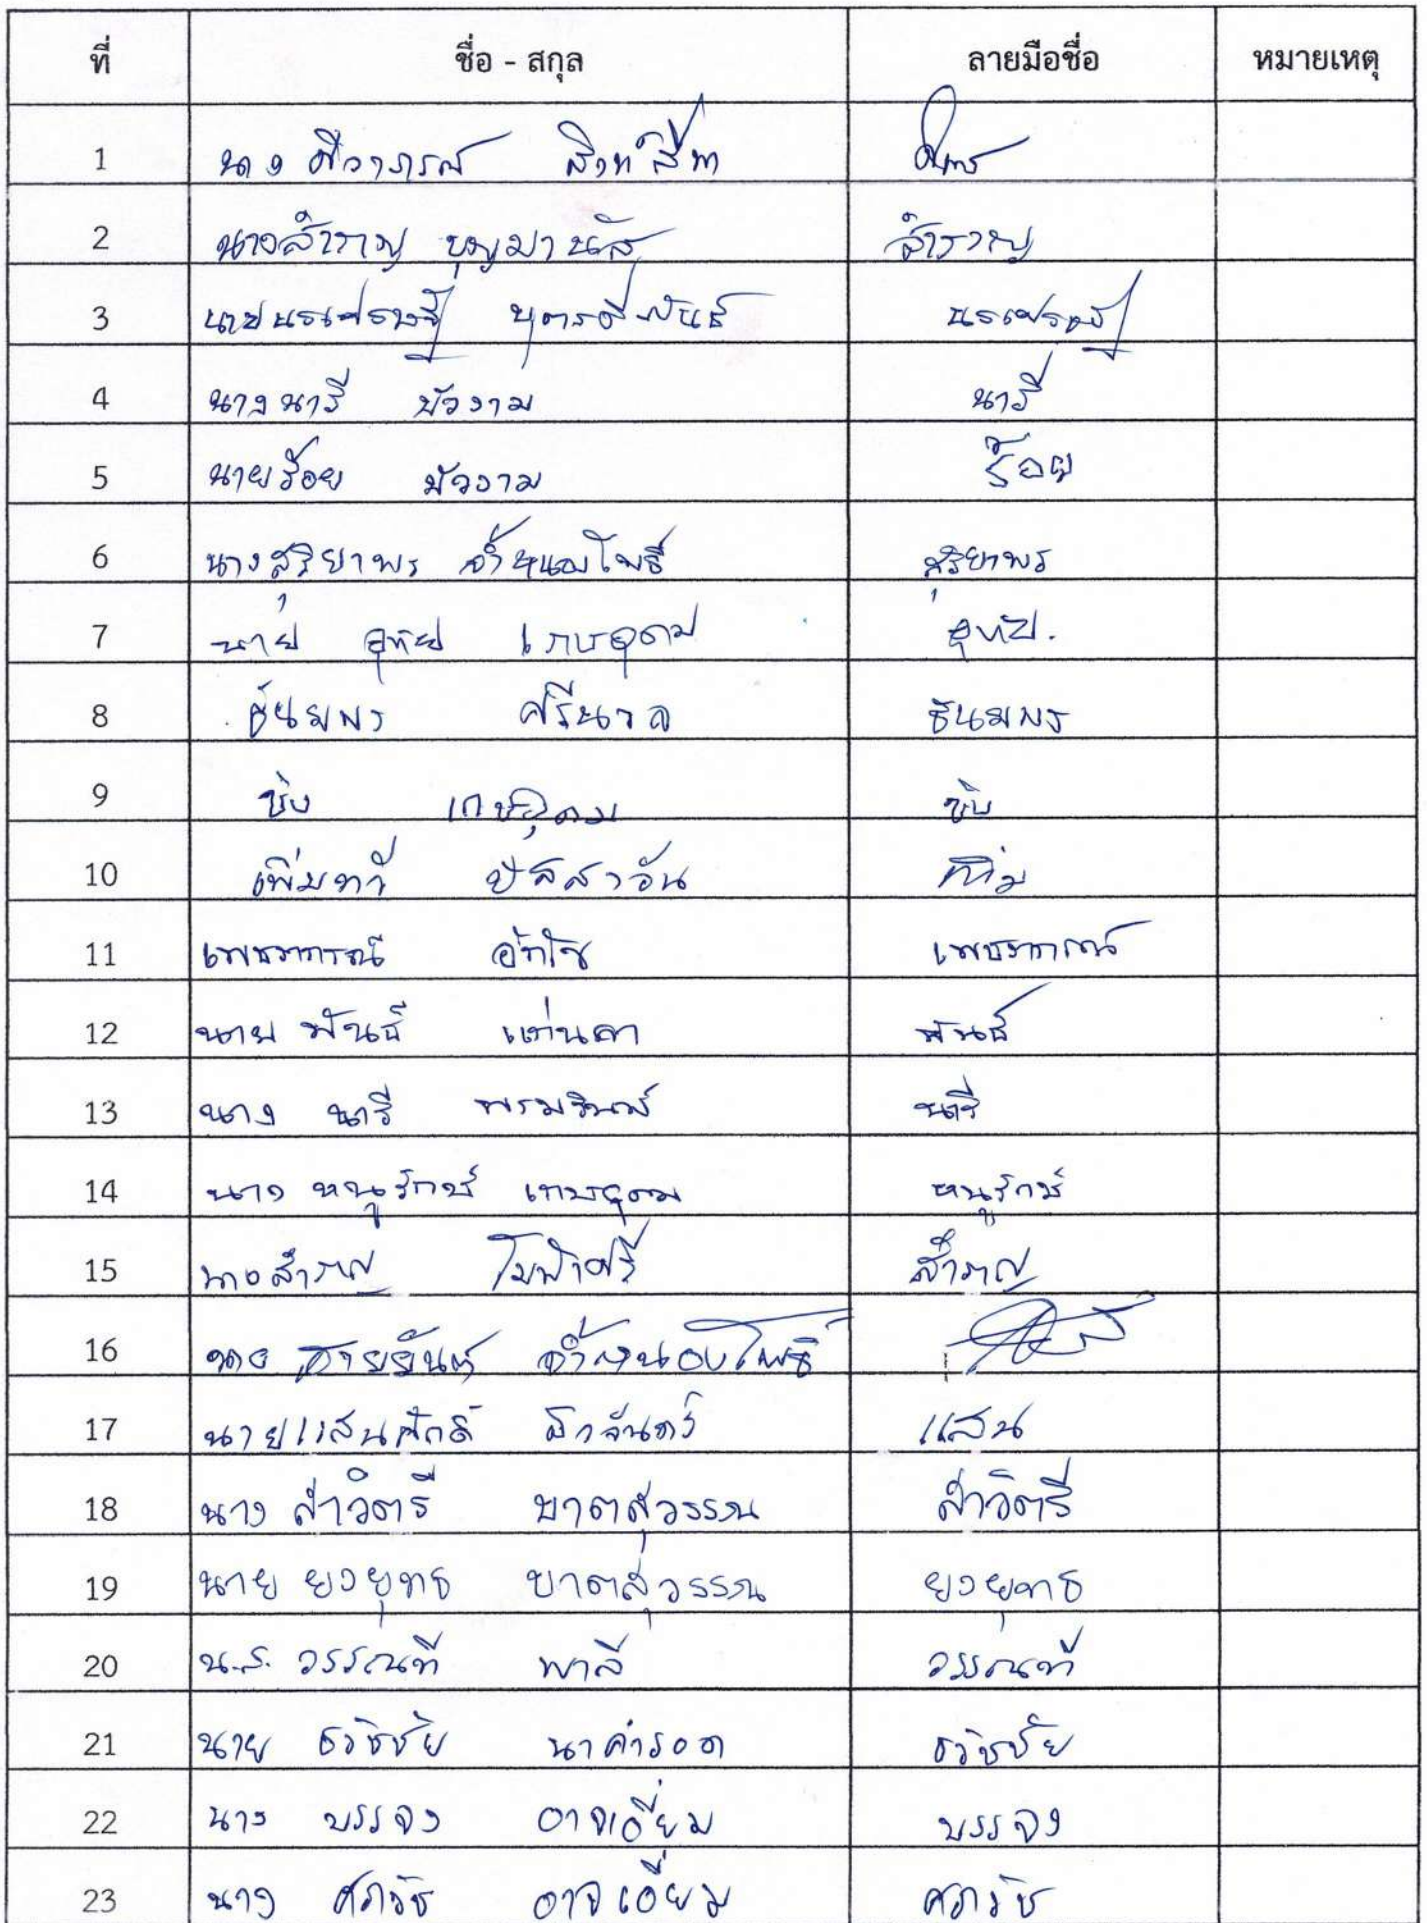 ที่ ชื่อ - สกุล ลายมือชื่อ หมายเหตุ
1 นาง ศิวาภรณ์
2 นางสำราญ บุญมานัส สำราญ
3 นายนรเศรษฐ์ บุตรดีพันธ์ นรเศรษฐ์
4 นางนารี บัวงาม นารี
5 นายร้อย บัวงาม ร้อย
6 นางสุริยาพร จำหนองโพธิ์ สุริยาพร
7 นาย อุทัย เกษอุดม อุทัย.
8 ธันยพร ศรีนวล
9 เกษอุดม
10 ปัสสาวัน
11 เพชราภรณ์ เพชราภรณ์
12 นาย พันธ์ แก่นคา พันธ์
13 นาง นารี พรมรินทร์ นารี
14 นาง หนูรักษ์ เกษอุดม หนูรักษ์
15 นางสำราญ สำราญ
16 นาย สายยันต์ จำหนองโพธิ์
17 นายแสนศักดิ์ แสน
18 นาง สาวิตรี บาตสุวรรณ สาวิตรี
19 นาย ยงยุทธ บาตสุวรรณ ยงยุทธ
20 น.ส. วรรณที พาลี วรรณที
21 นาย ธวัชชัย นาคำรอด ธวัชชัย
22 นาง บรรจง อาจเอี่ยม บรรจง
23 นาง อาจเอี่ยม